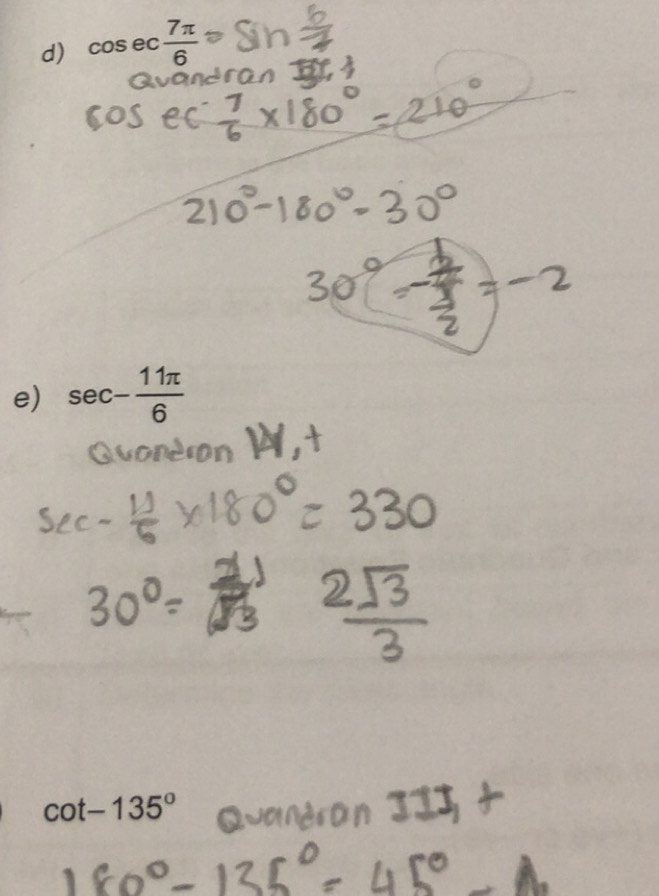 d) cosec 7π/6 = Sin 6/7
Quandran III,
cos ec 7/6 ×180° = 210°
210° - 180° = 30°
30° = - 1/(1/2) = -2
e) sec - 11π/6
Quandron IV, +
Sec - 11/6 ×180° = 330
30° = 2√3/3
cot - 135° Quandron III, +
180° - 135° = 45° =